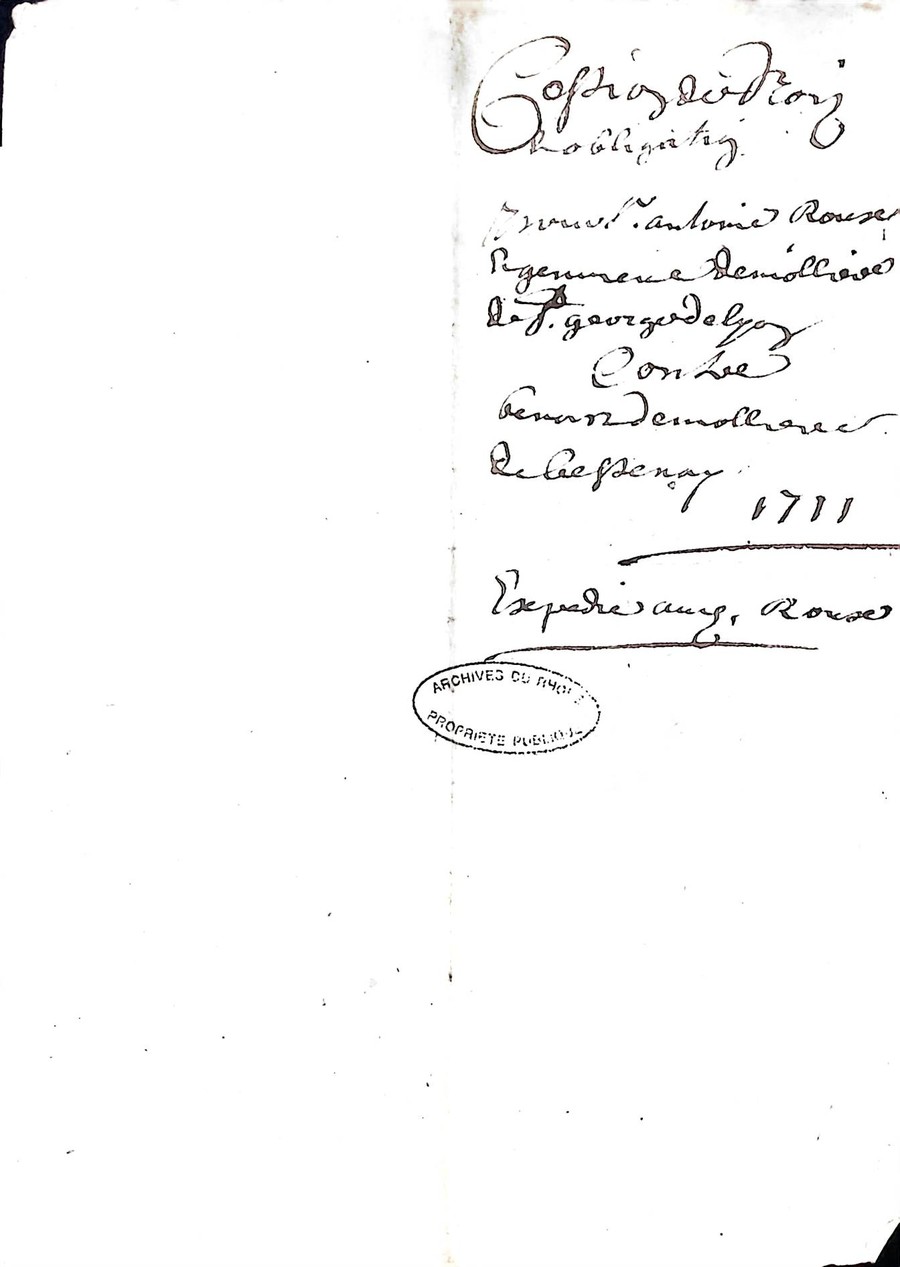 Cession de droit
& obligation
pour Sr. antoine Roux
demolliere
de St. george de lyon
Contre
benoit demolliere
de bessenay
1711
Expedié aud. Roux
ARCHIVES DU RHONE
PROPRIETE PUBLIQUE